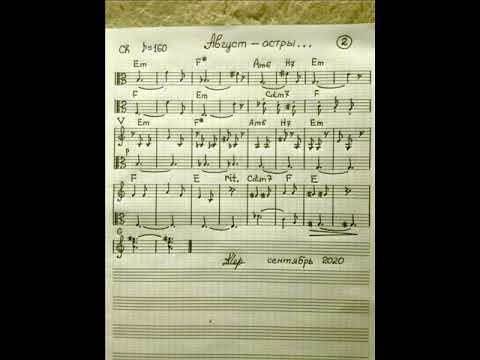 Ch ♪=160 Август - астры... 2
Em F# Am6 H7 Em
F Em Cdim7 F
V Em F# Am6 H7 Em
P
F E rit. Cdim7 F E
G
сентябрь 2020